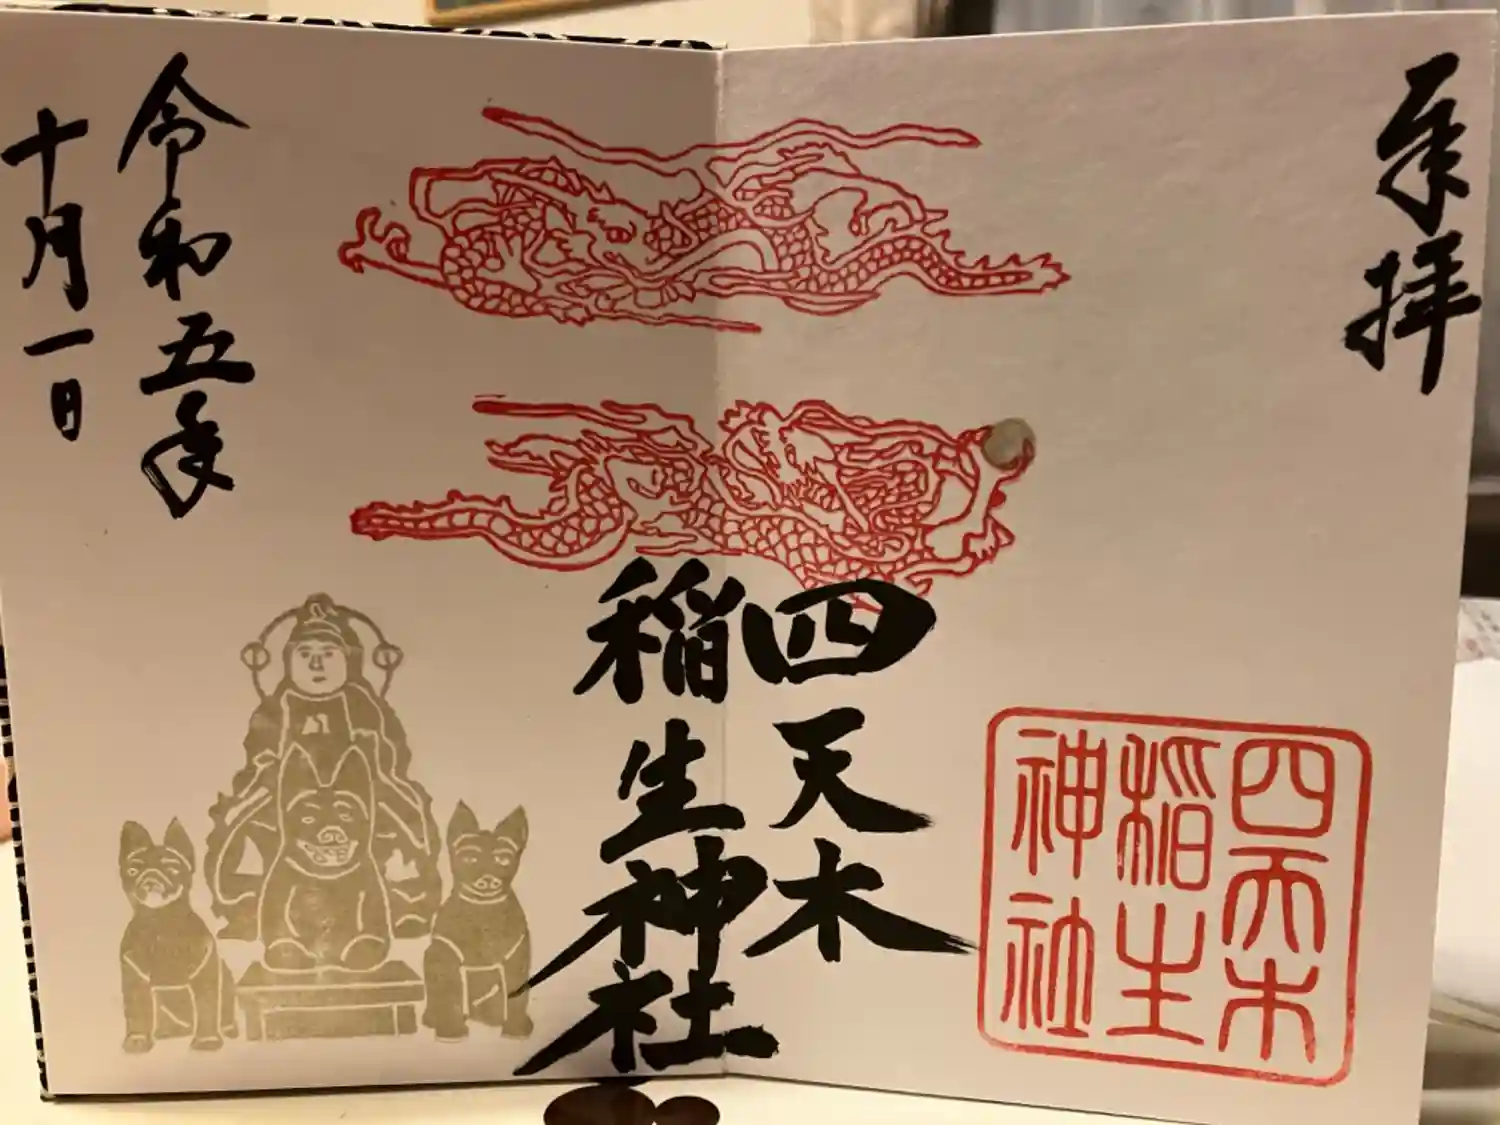 奉拝
四天木
稲生神社
四天木
稲生
神社
令和五年
十月一日